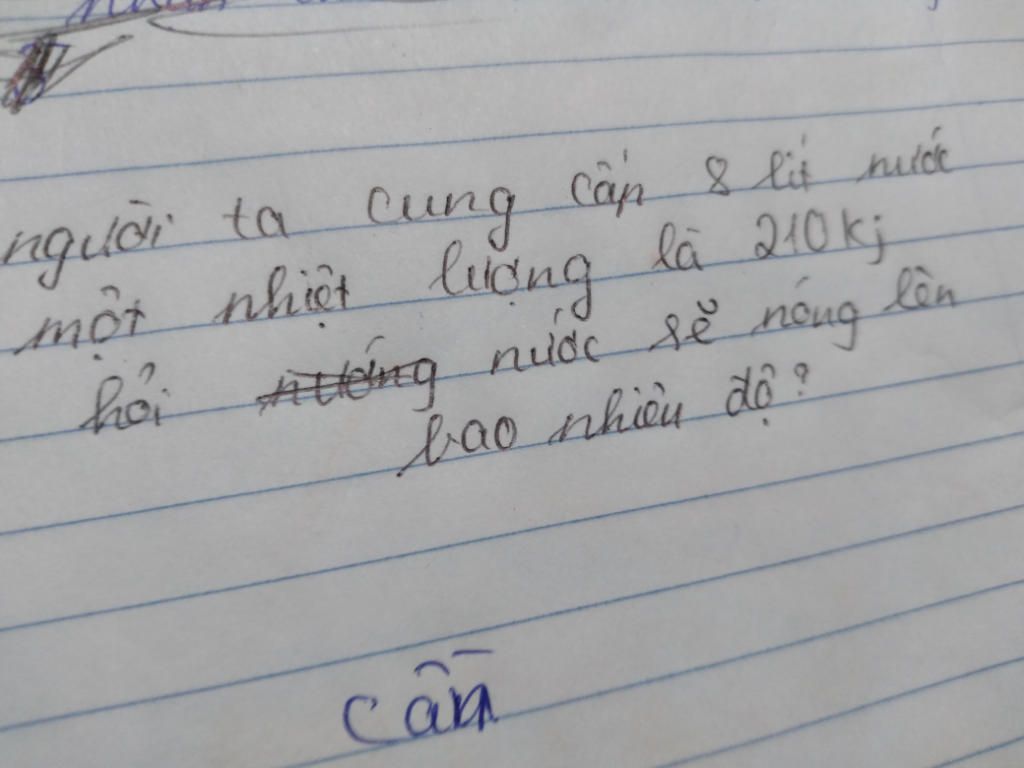 người ta cung cấp 8 lít nước
một nhiệt lượng là 210kj
hỏi nước sẽ nóng lên
bao nhiêu độ?
cần